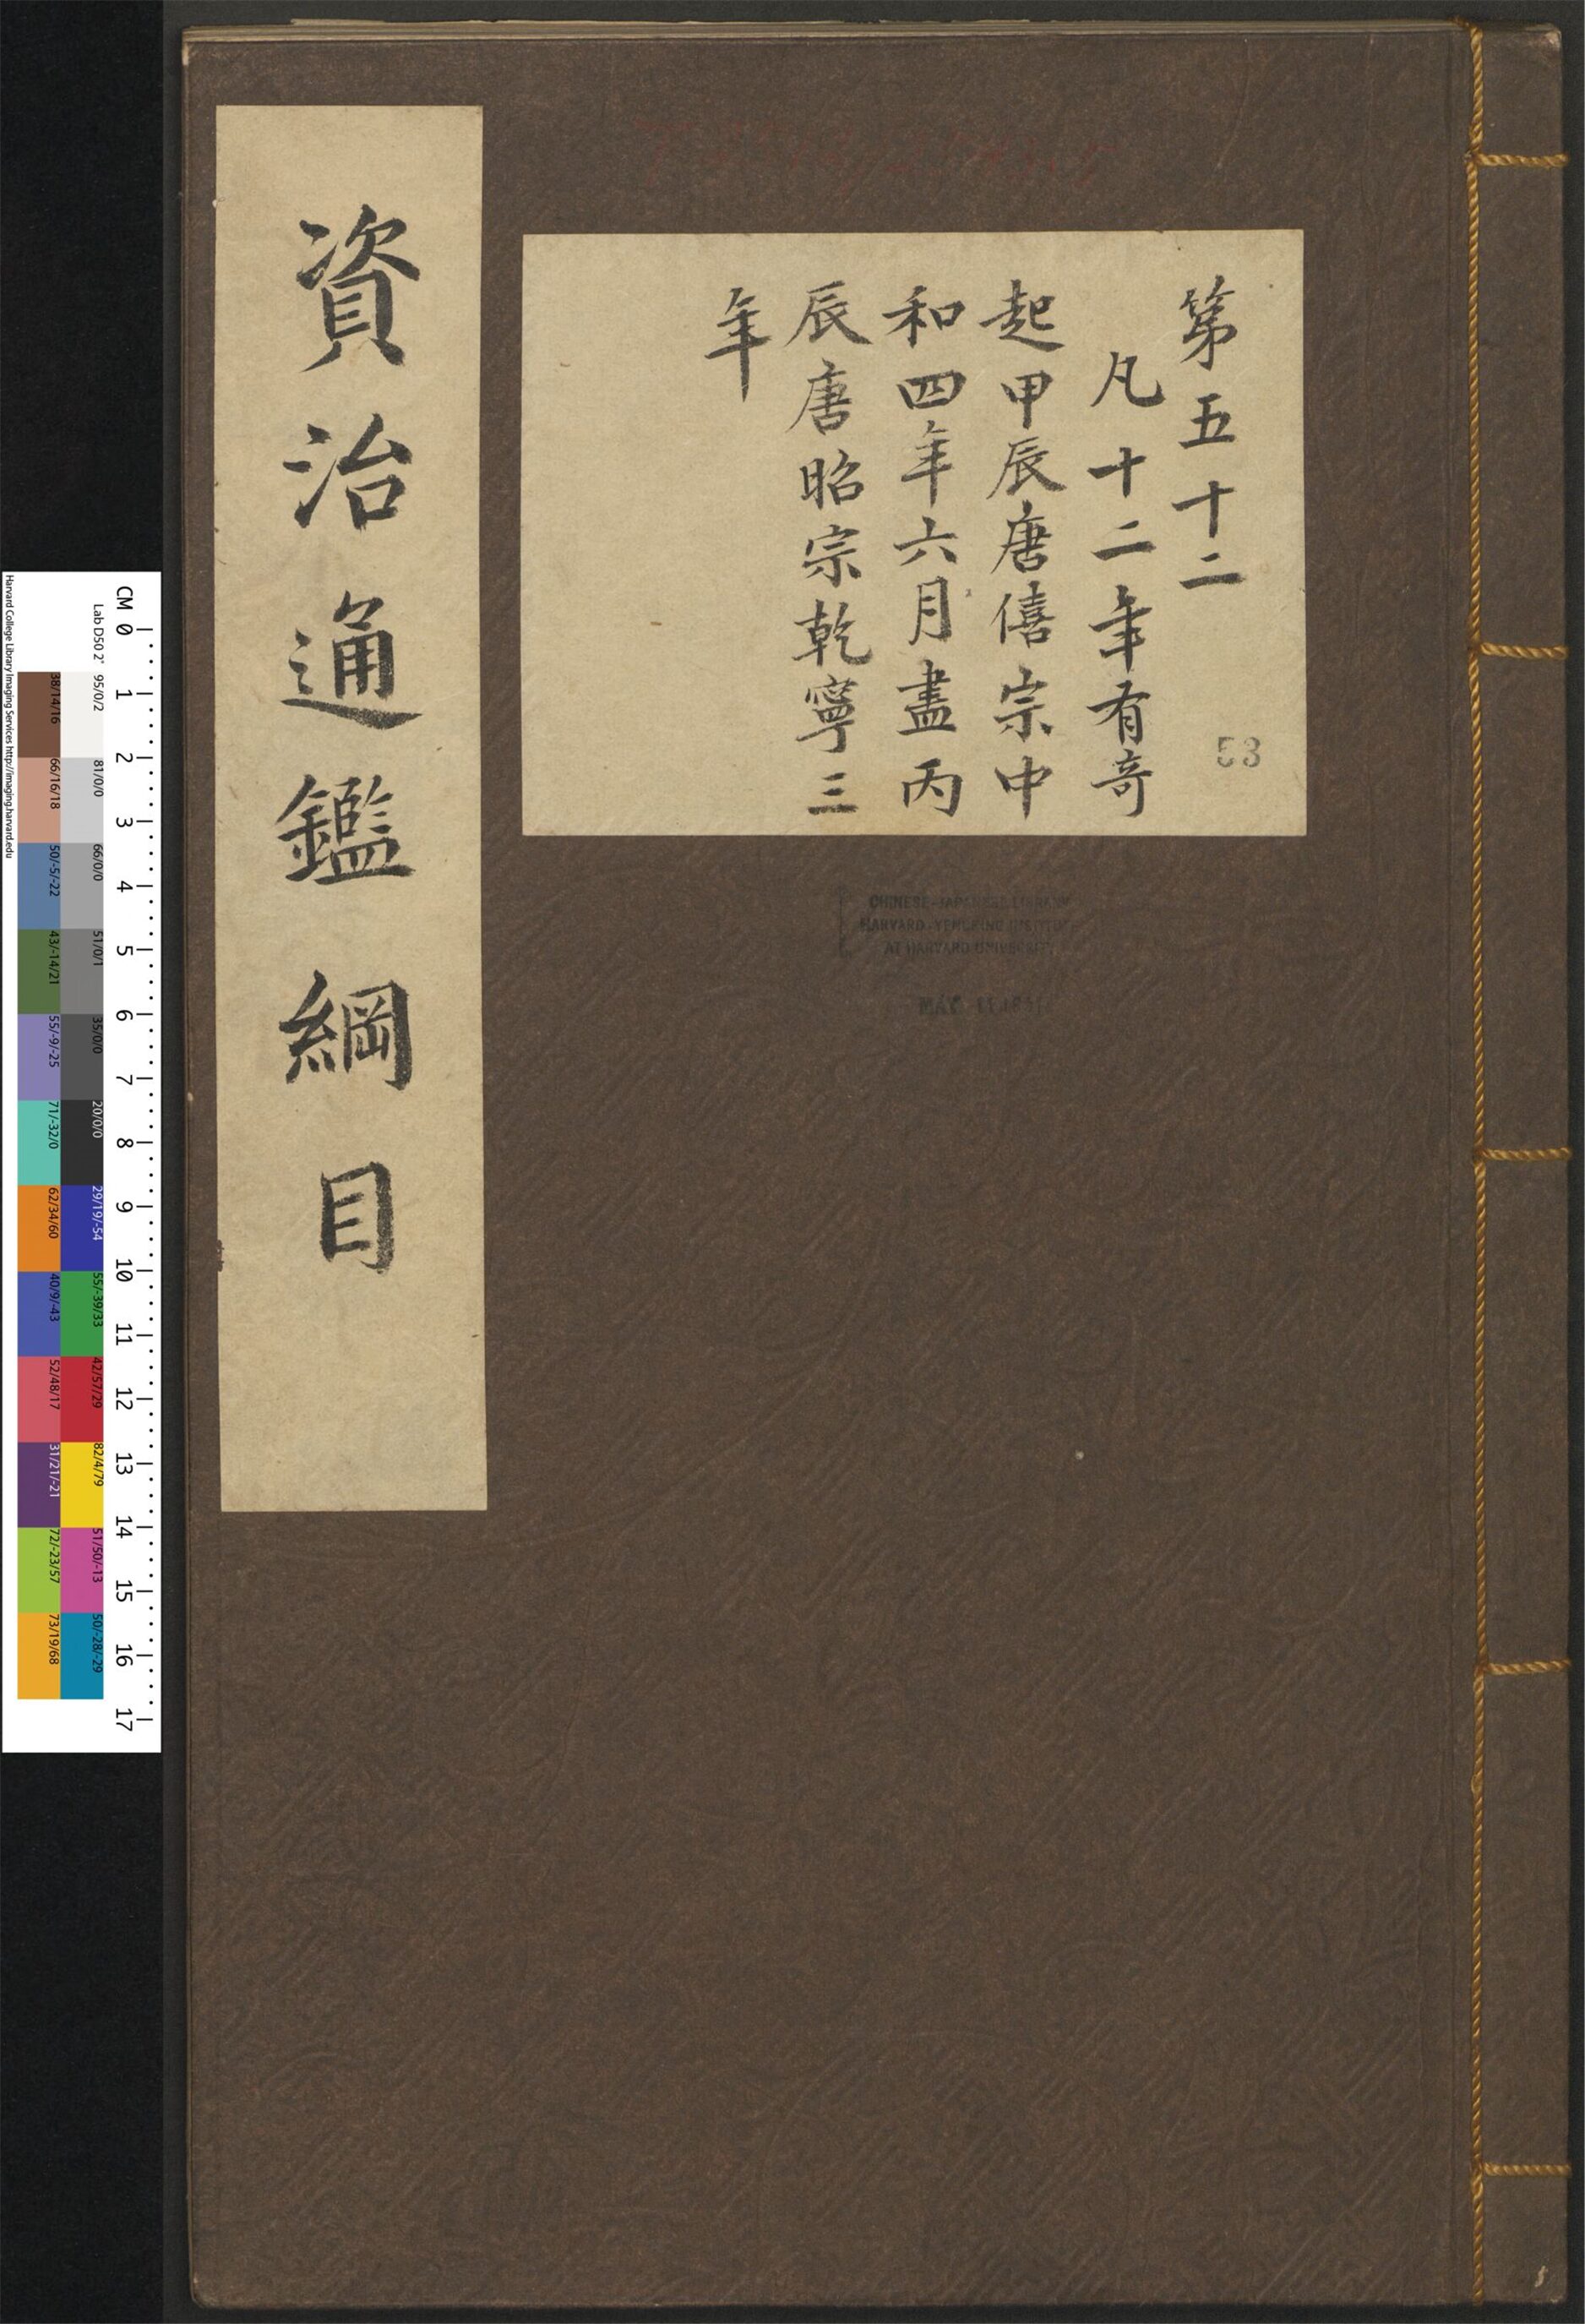 第五十二
凡十二年有奇
起甲辰唐僖宗中
和四年六月盡丙
辰唐昭宗乾寧三
年
53
資治通鑑綱目
CHINESE-JAPANESE LIBRARY
HARVARD-YENCHING INSTITUTE
AT HARVARD UNIVERSITY
MAY 11
CM 0 1 2 3 4 5 6 7 8 9 10 11 12 13 14 15 16 17
Lab D50 2°
95/0/2
81/0/0
66/0/0
51/0/1
35/0/0
20/0/0
29/19/-54
55/-39/33
42/57/29
82/4/79
51/50/-13
50/-28/-29
38/14/16
66/16/18
50/-5/-22
43/-14/21
55/-9/-25
71/-32/0
62/34/60
40/9/-43
52/48/17
31/21/-21
72/-23/57
73/19/68
Harvard College Library Imaging Services http://imaging.harvard.edu